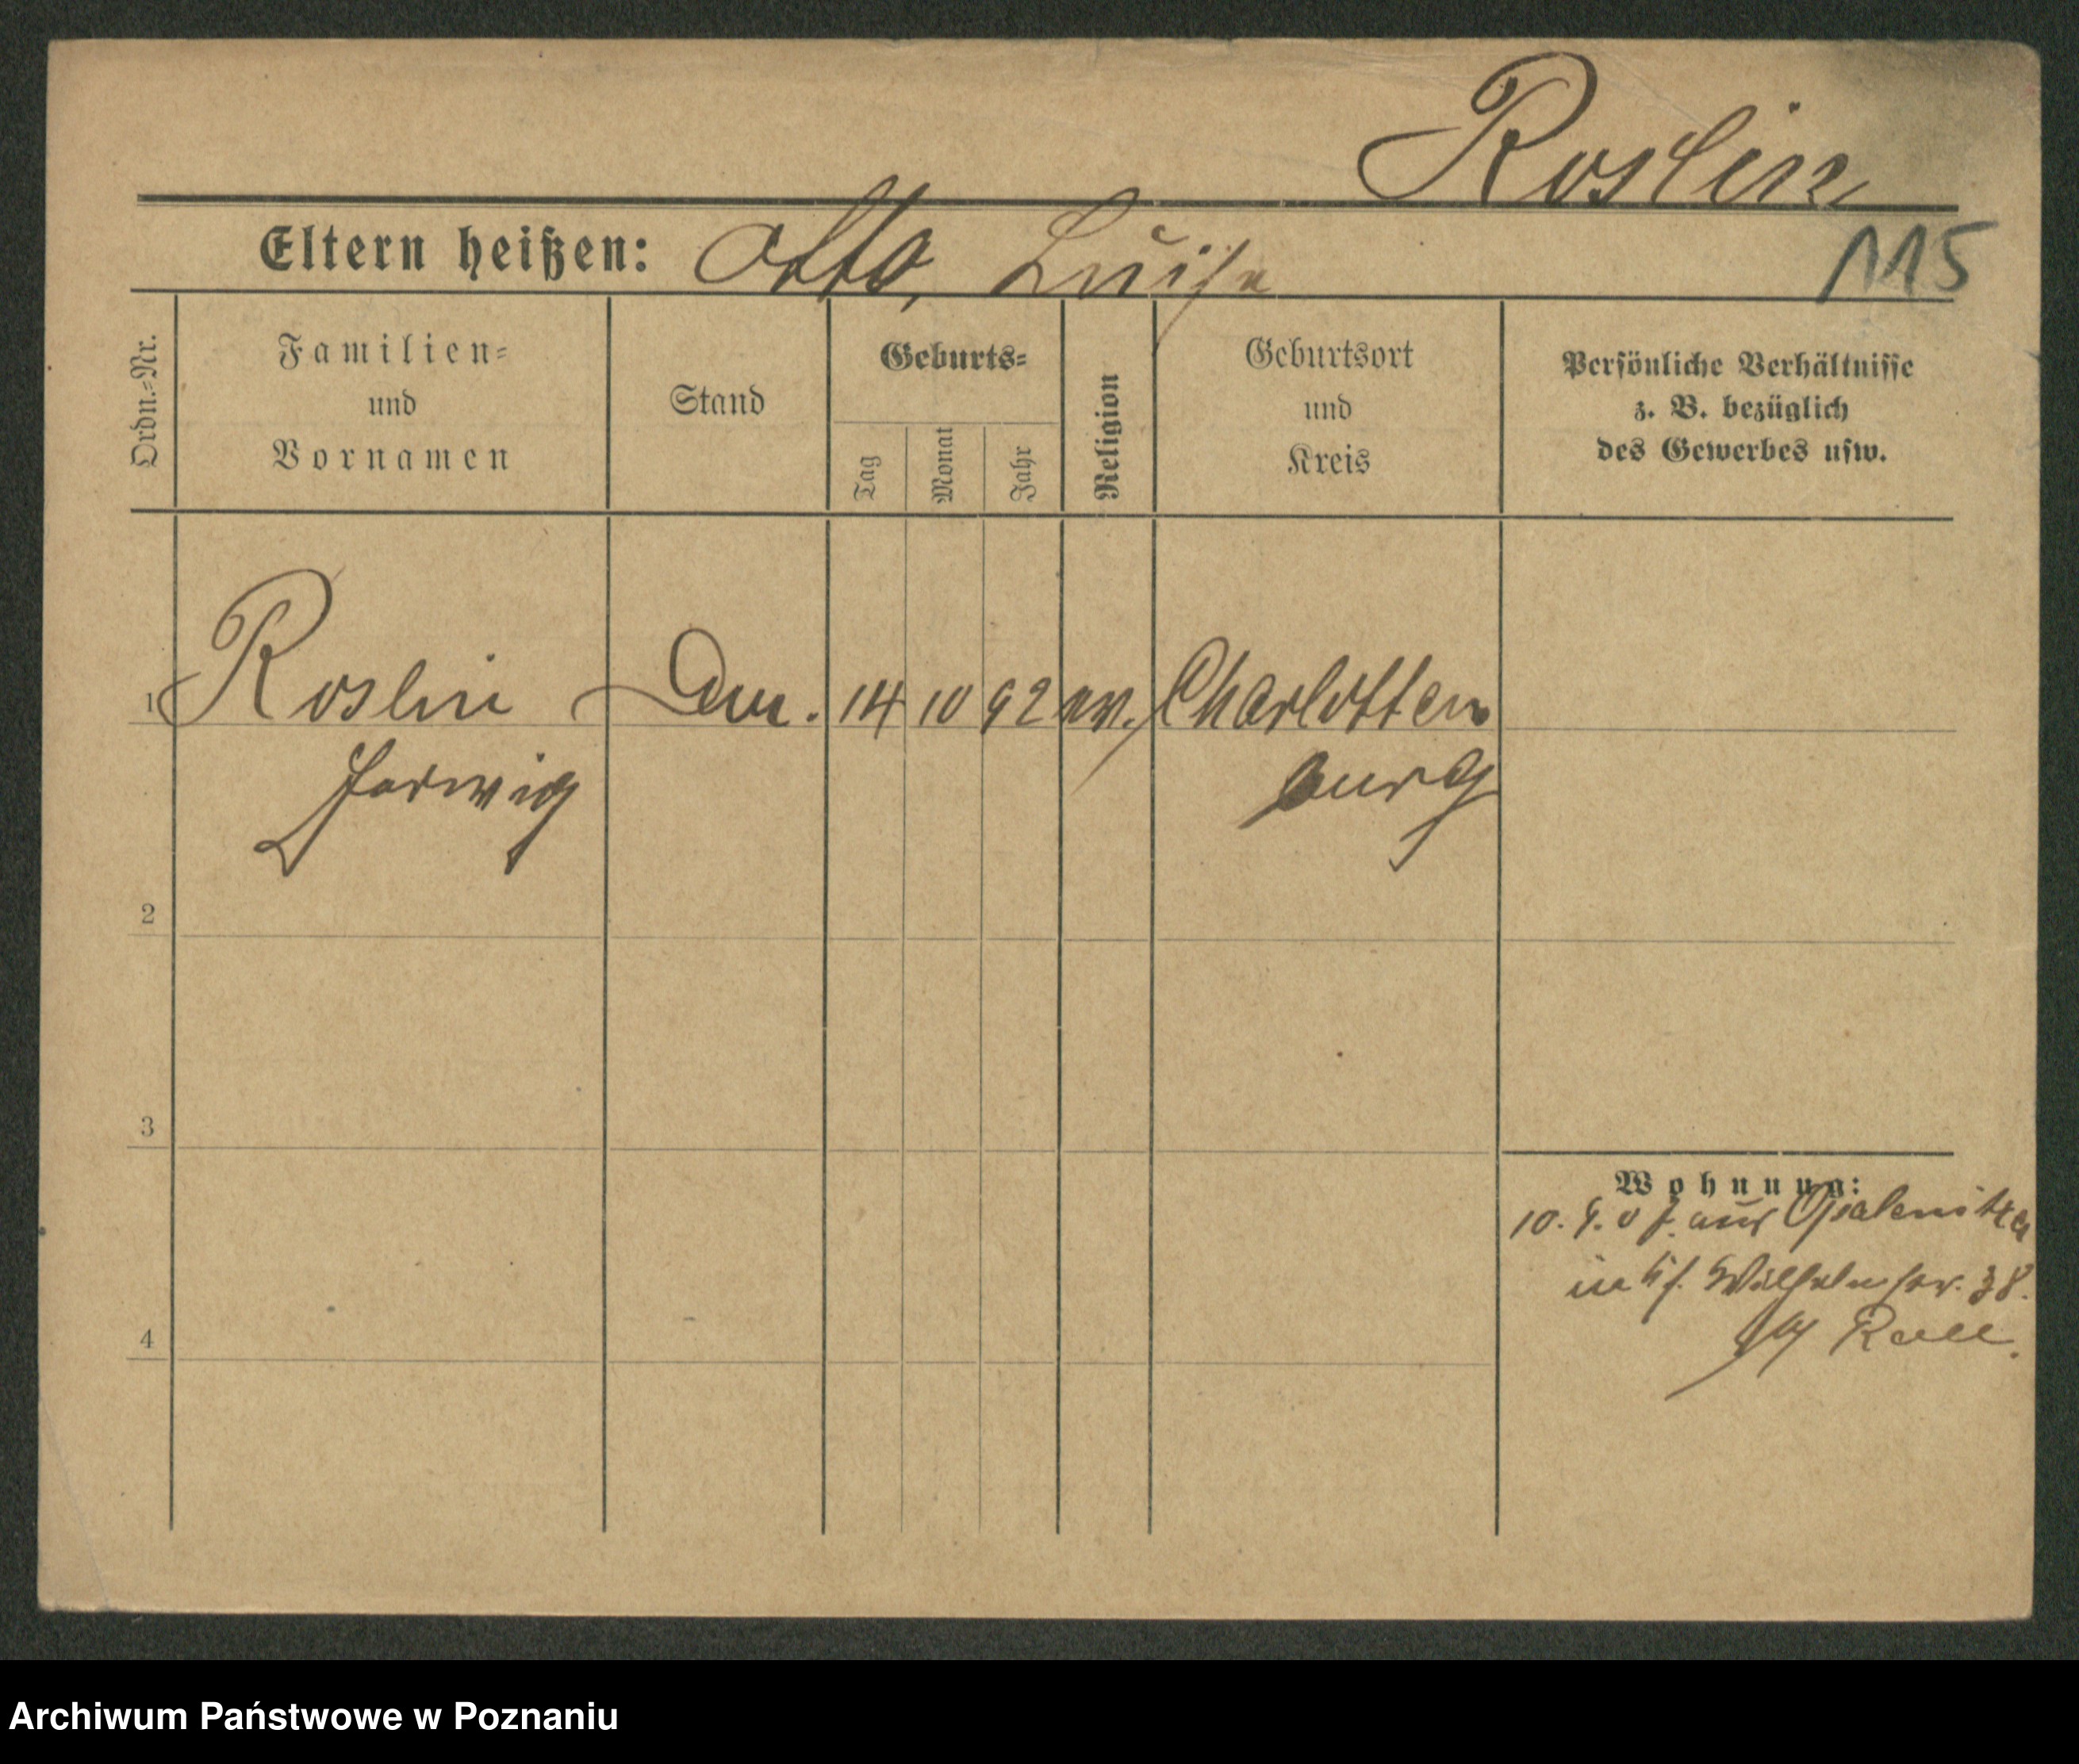 Roslin
Eltern heißen: Otto, Luise
115
Ordn.-Nr.
Familien-
und
Vornamen
Stand
Geburts-
Tag
Monat
Jahr
Religion
Geburtsort
und
Kreis
Persönliche Verhältnisse
z. B. bezüglich
des Gewerbes usw.
1 Roslin 14 10 92 ev. Charlotten
burg
2
3
4
Wohnung:
10. 9. 07. aus Opalenitza
in Wilhelmstr. 38.
Archiwum Państwowe w Poznaniu